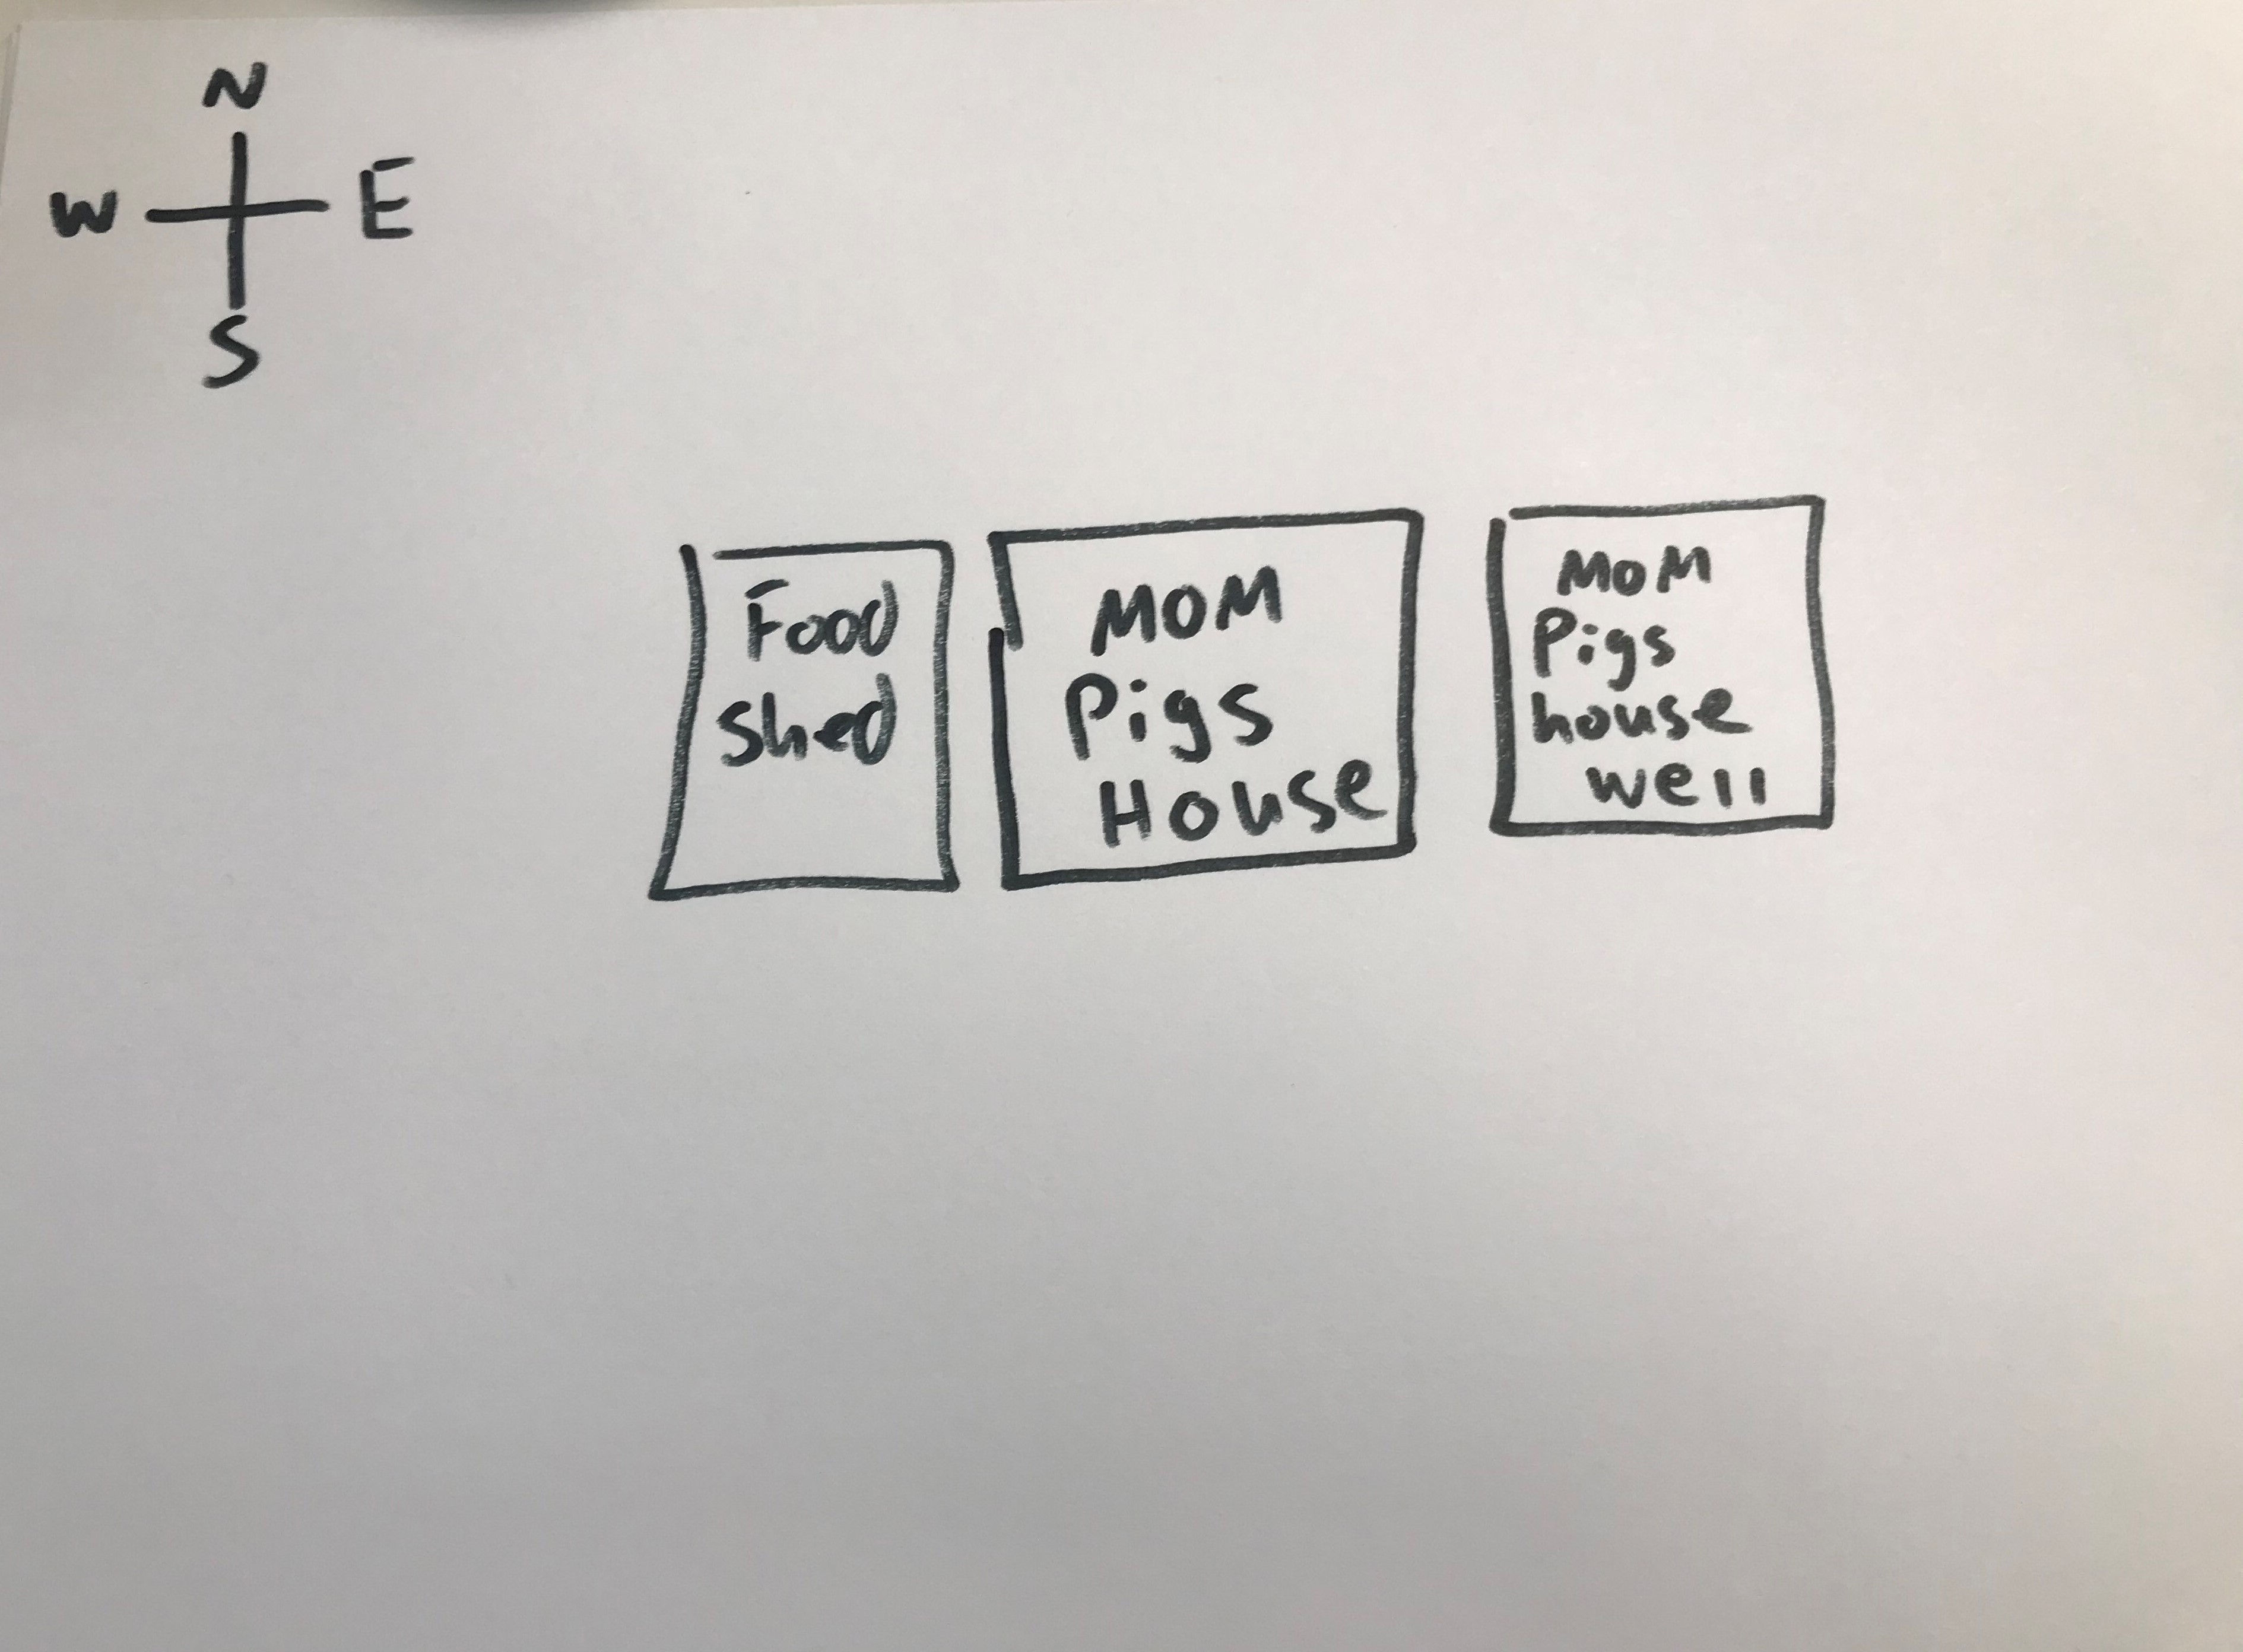 N
W E
S
Food
Shed
MOM
Pigs
House
MOM
Pigs
house
well